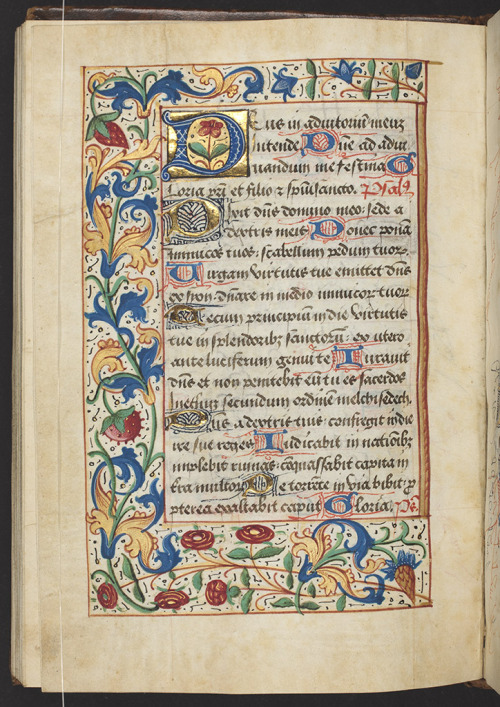 Deus in adiutoriū meuȝ
intende Dn̄e ad adiu
uandum me festina G
loria pr̄i et filio ⁊ sp̄ui sancto. Psal9
Dixit dn̄s domino meo: sede a
dextris meis Donec ponā
inimicos tuos: scabellum pedum tuoꝝ
Uirgam virtutis tue emittet dn̄s
ex syon: dn̄are in medio inimicoꝝ tuoꝝ
Tecum principium in die virtutis
tue in splendoribꝫ sanctoꝝ: ex utero
ante luciferum genui te Iurauit
dn̄s et non penitebit eū: tu es sacerdos
in eternū secundum ordinē melchisedech
Dn̄s a dextris tuis: confregit in die
ire sue reges Iudicabit in nationibꝫ
implebit ruinas: cōquassabit capita in
terra multoꝝ De torrente in via bibit: ꝓ
pterea exaltabit caput Gloria. Ps.